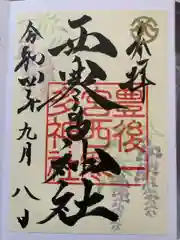 奉拝
豊後一
宮西寒
多神社
西寒多神社
令和四年九月八日